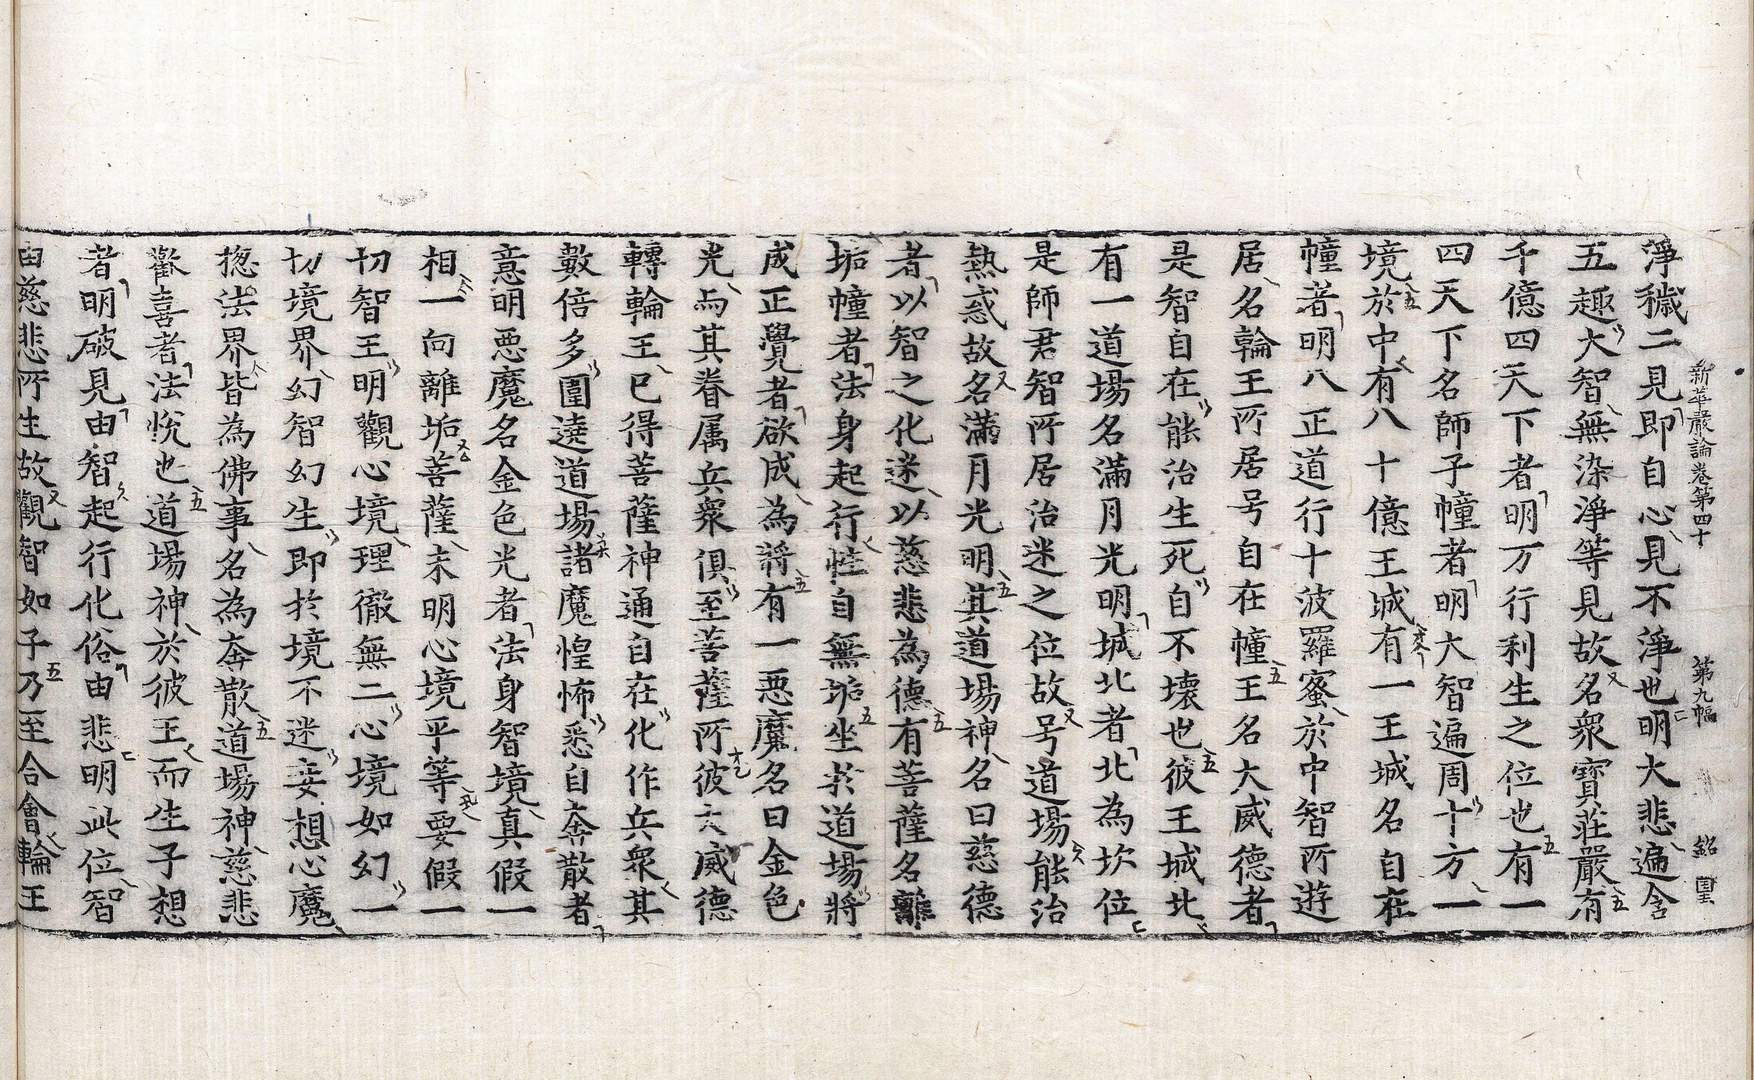 新華嚴論卷第四十 第九幅 銘 罣
淨穢二見即自心見不淨也明大悲遍含
五趣大智無染淨等見故名衆寶莊嚴有
千億四天下者明万行利生之位也有一
四天下名師子幢者明大智遍周十方一
境於中有八十億王城有一王城名自在
幢者明八正道行十波羅蜜於中智所遊
居名輪王所居号自在幢王名大威德者
是智自在能治生死自不壞也彼王城北
有一道場名滿月光明城北者北為坎位
是師君智所居治迷之位故号道場能治
熱惑故名滿月光明其道場神名曰慈德
者以智之化迷以慈悲為德有菩薩名離
垢幢者法身起行恠自無垢坐於道場將
成正覺者欲成為將有一惡魔名曰金色
光与其眷属兵衆俱至菩薩所彼大威德
轉輪王已得菩薩神通自在化作兵衆其
數倍多圍遶道場諸魔惶怖悉自奔散者
意明惡魔名金色光者法身智境真假一
相一向離垢菩薩未明心境乎等要假一
切智王明觀心境理徹無二心境如幻一
切境界幻智幻生即於境不迷妄想心魔
揔法界皆為佛事名為奔散道場神慈悲
歡喜者法悅也道場神於彼王而生子想
者明破見由智起行化俗由悲明此位智
由慈悲所生故觀智如子乃至合會輪王